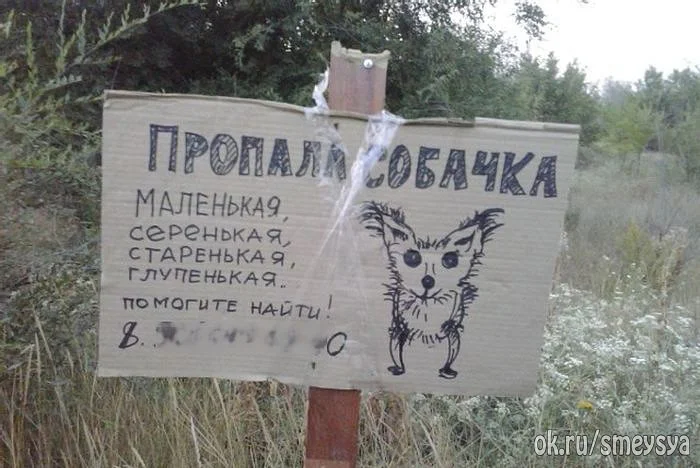 ПРОПАЛА СОБАЧКА
МАЛЕНЬКАЯ,
СЕРЕНЬКАЯ,
СТАРЕНЬКАЯ,
ГЛУПЕНЬКАЯ..
ПОМОГИТЕ НАЙТИ!
8.
ok.ru/smeysya